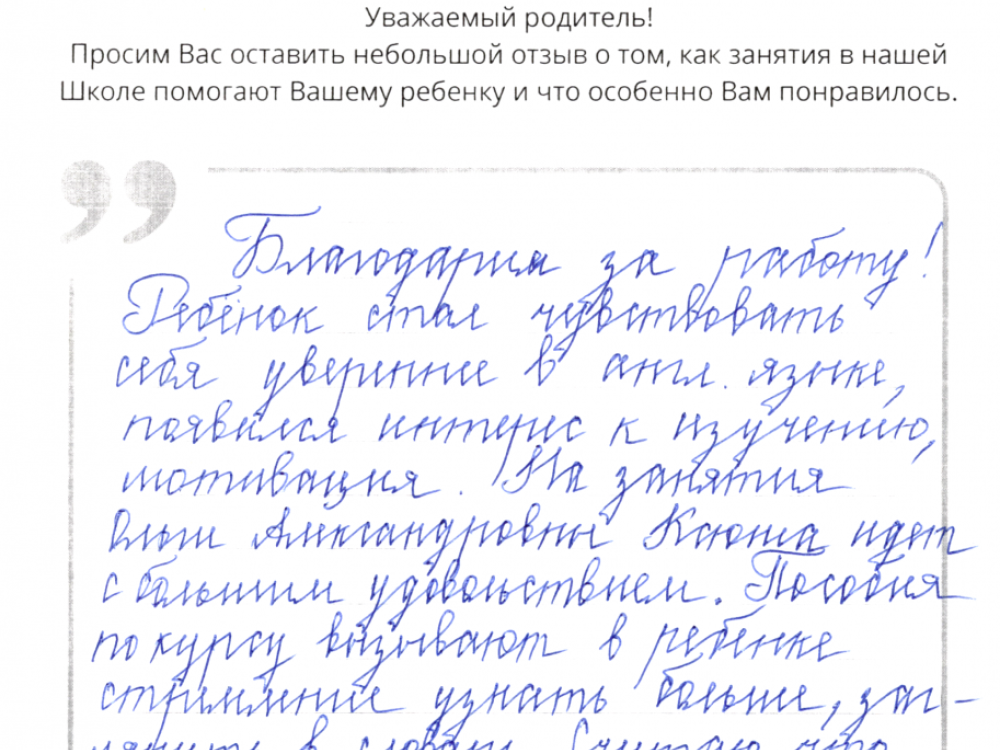 Уважаемый родитель!
Просим Вас оставить небольшой отзыв о том, как занятия в нашей
Школе помогают Вашему ребенку и что особенно Вам понравилось.
Благодарим за работу!
Ребёнок стал чувствовать
себя увереннее в англ. языке,
появился интерес к изучению,
мотивация. На занятия
Ольги Александровны Ксюша идет
с большим удовольствием. Пособия
по курсу вызывают в ребёнке
стремление узнать больше, заг-
лянуть в словарь. Считаю, что